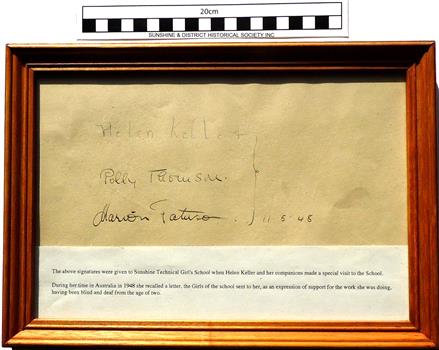 20cm
SUNSHINE & DISTRICT HISTORICAL SOCIETY INC
Helen Keller
Polly Thomson.
Marion
11-5-48
The above signatures were given to Sunshine Technical Girl's School when Helen Keller and her companions made a special visit to the School.
During her time in Australia in 1948 she recalled a letter, the Girls of the school sent to her, as an expression of support for the work she was doing,
having been blind and deaf from the age of two.